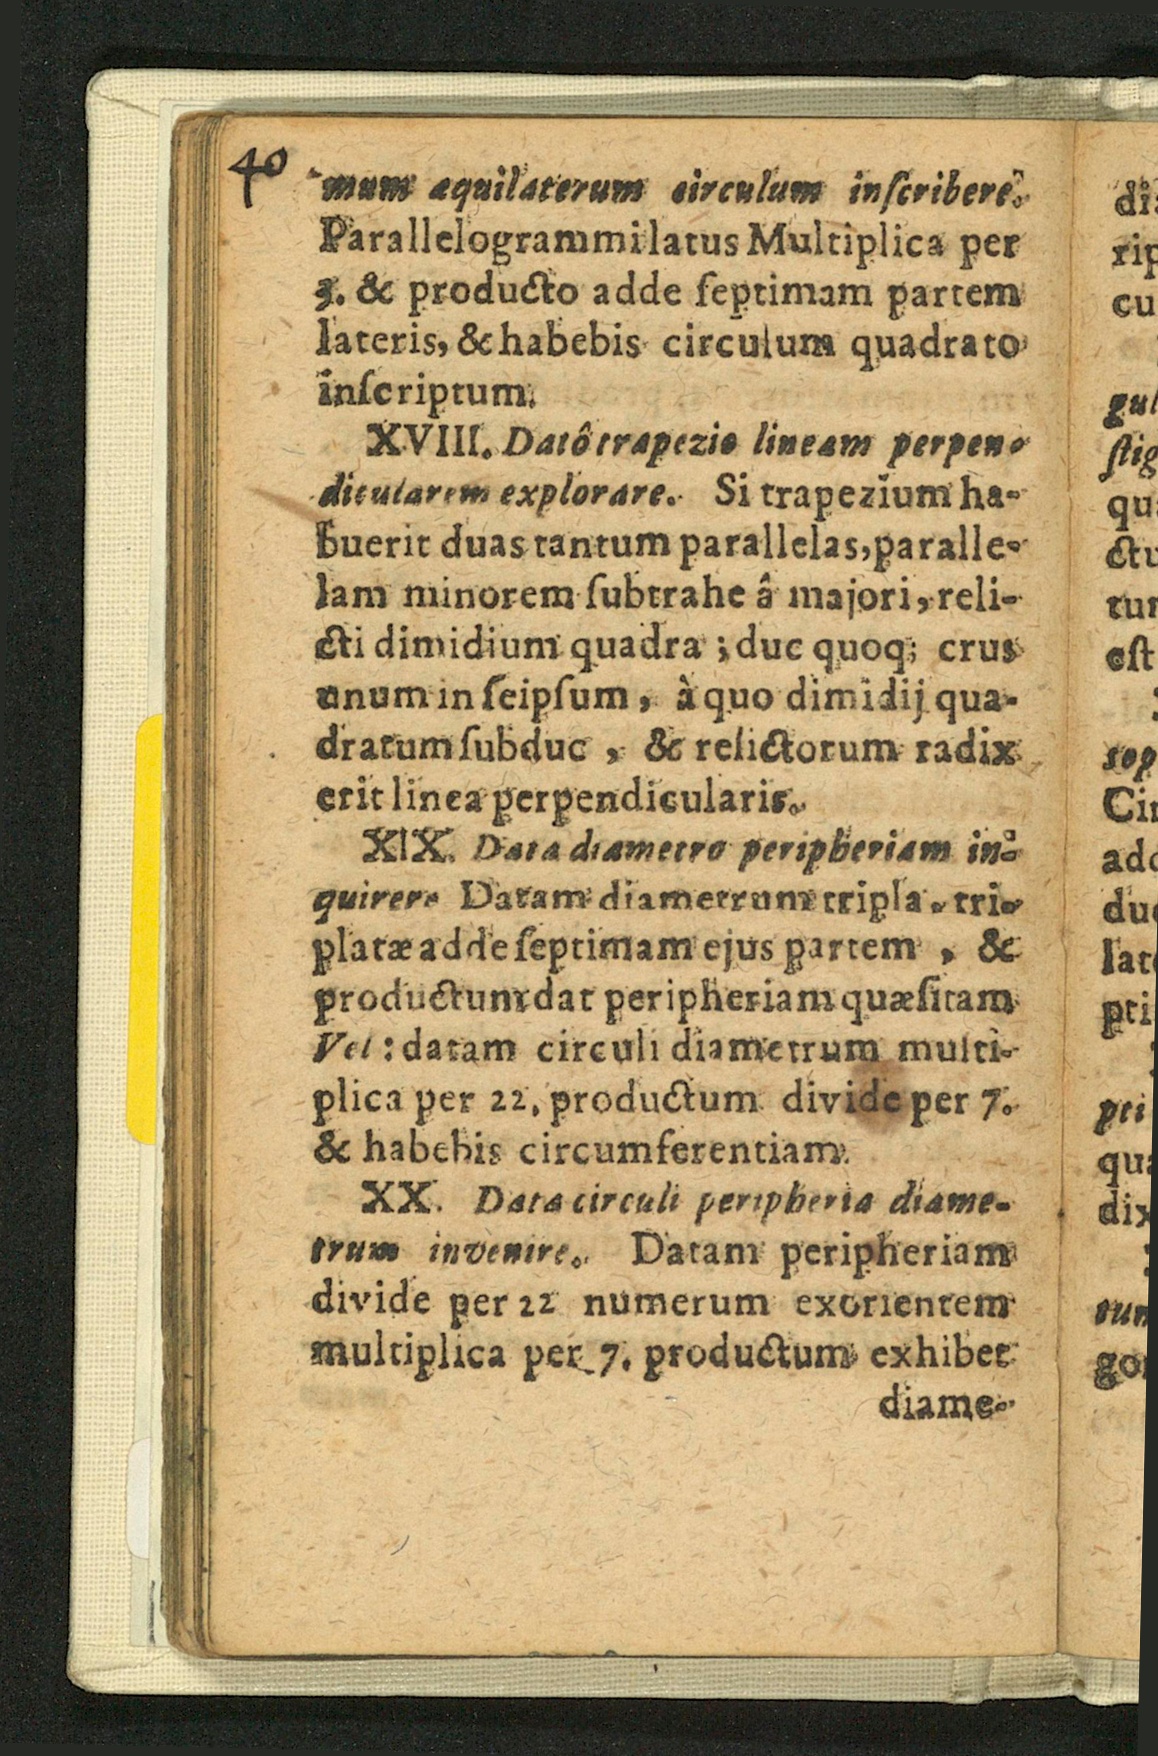 40
mum æquilaterum circulum inſcribere.
Parallelogrammi latus Multiplica per
3. & producto adde ſeptimam partem
lateris, & habebis circulum quadrato
inſcriptum.
XVIII. Datô trapezio lineam perpen-
dicularem explorare. Si trapezium ha-
buerit duas tantum parallelas, paralle-
lam minorem ſubtrahe â majori, reli-
cti dimidium quadra ; duc quoq; crus
unum in ſeipſum, à quo dimidij qua-
dratum ſubduc, & relictorum radix
erit linea perpendicularis.
XIX. Data diametro peripheriam in-
quirere Datam diametrum tripla. tri-
platæ adde ſeptimam ejus partem, &
productum dat peripheriam quæſitam
Vel : datam circuli diametrum multi-
plica per 22. productum divide per 7.
& habebis circumferentiam.
XX. Data circuli peripheria diame-
trum invenire. Datam peripheriam
divide per 22 numerum exorientem
multiplica per 7. productum exhibet
diame-
di
rip
cu
gul
ſtig
qu
ctu
tur
eſt
rep
Cir
add
duc
lat
pti
pti
qua
dix
tun
go